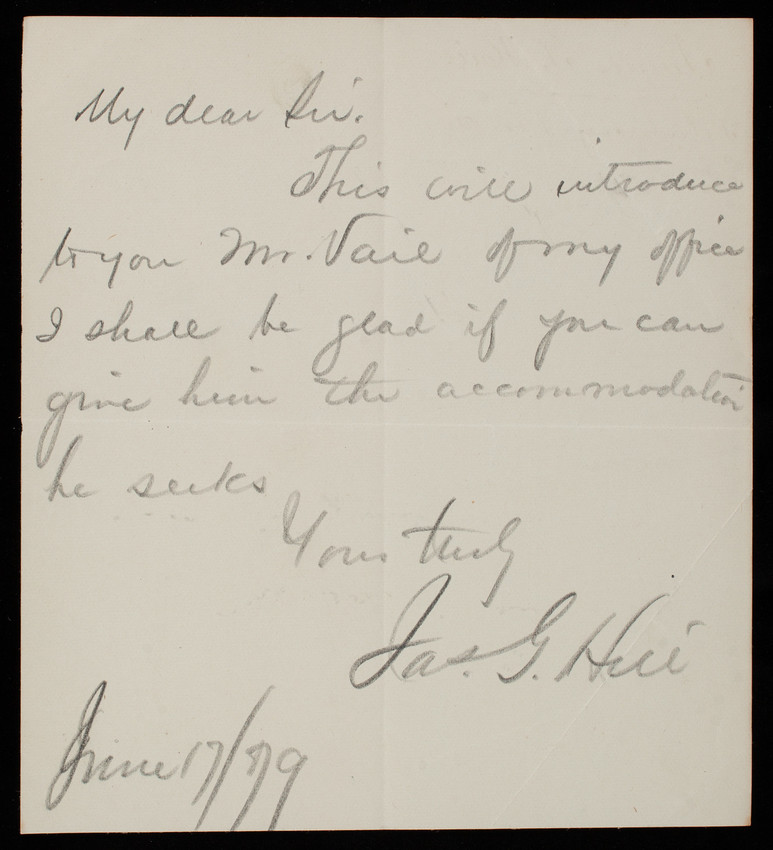 My dear Sir.
This will introduce
to you Mr. Vail of my office
I shall be glad if you can
give him the accommodation
he seeks
Yours truly
Jas. G. Hill
June 17/79